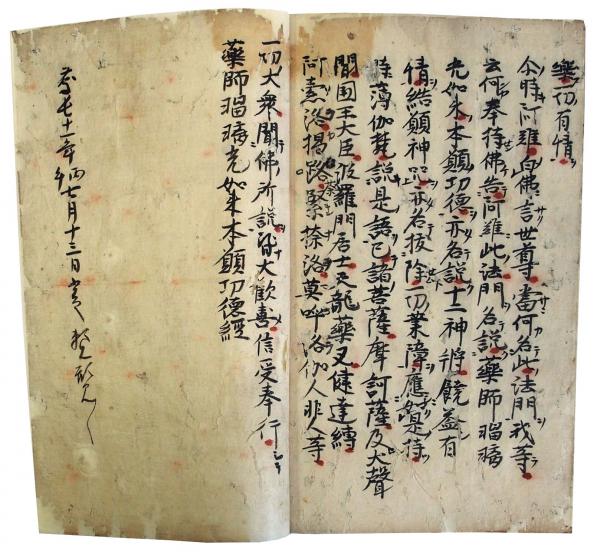 樂一切有情
尒時阿難白佛言世尊當何名此法門我等
云何奉持佛告阿難此法門名說藥師瑠璃
光如来本願功德亦名說十二神将饒益有
情結願神呪亦名拔除一切業障應如是持
時薄伽梵說是語已諸菩薩摩訶薩及大聲
聞国王大臣波羅門居士天龍藥叉健達縛
阿素洛揭路荼緊捺洛莫呼洛伽人非人等
一切大衆聞佛所說皆大歡喜信受奉行
藥師瑠璃光如来本願功德經
十一年丙午七月十三日